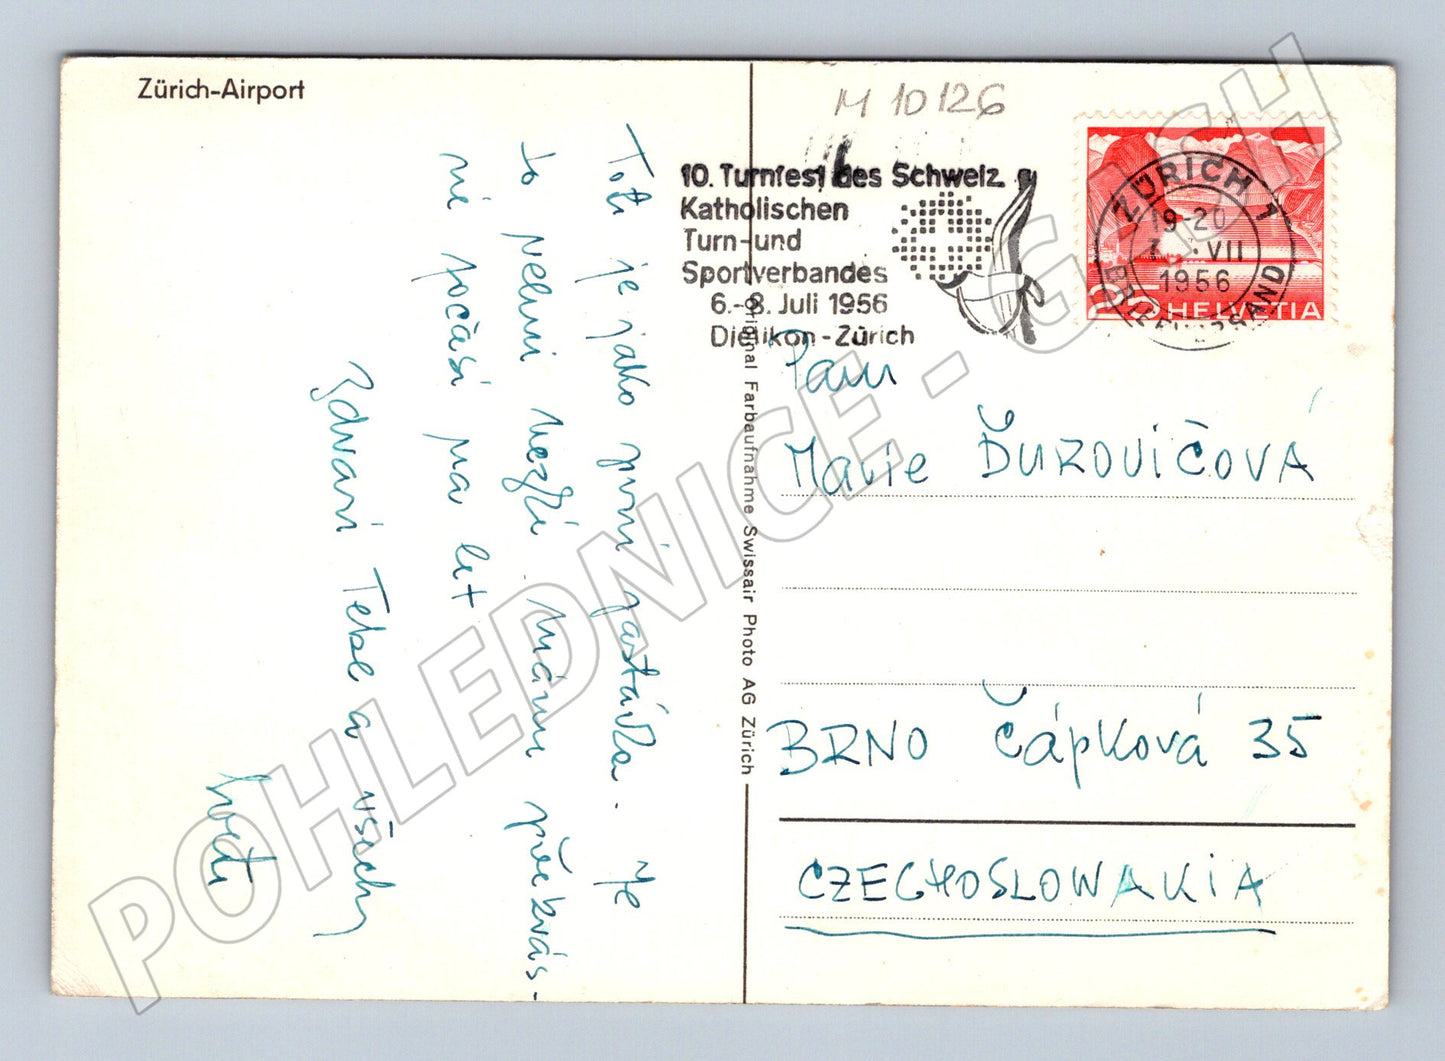 Zürich-Airport
M 10126
10. Turnfest des Schweiz.
Katholischen
Turn- und
Sportverbandes
6.-8. Juli 1956
Dietikon - Zürich
ZÜRICH 1
19-20
VII
1956
BRIEFVERSAND
25 HELVETIA
Toto je jako první zastávka. Je
to velmi hezké. Máme překrás-
né počasí na let
Zdraví Tebe a všechny
Original Farbaufnahme Swissair Photo AG Zürich
Paní
Marie ĎUROVIČOVÁ
BRNO Čápková 35
CZECHOSLOWAKIA
POHLEDNICE - GALASH